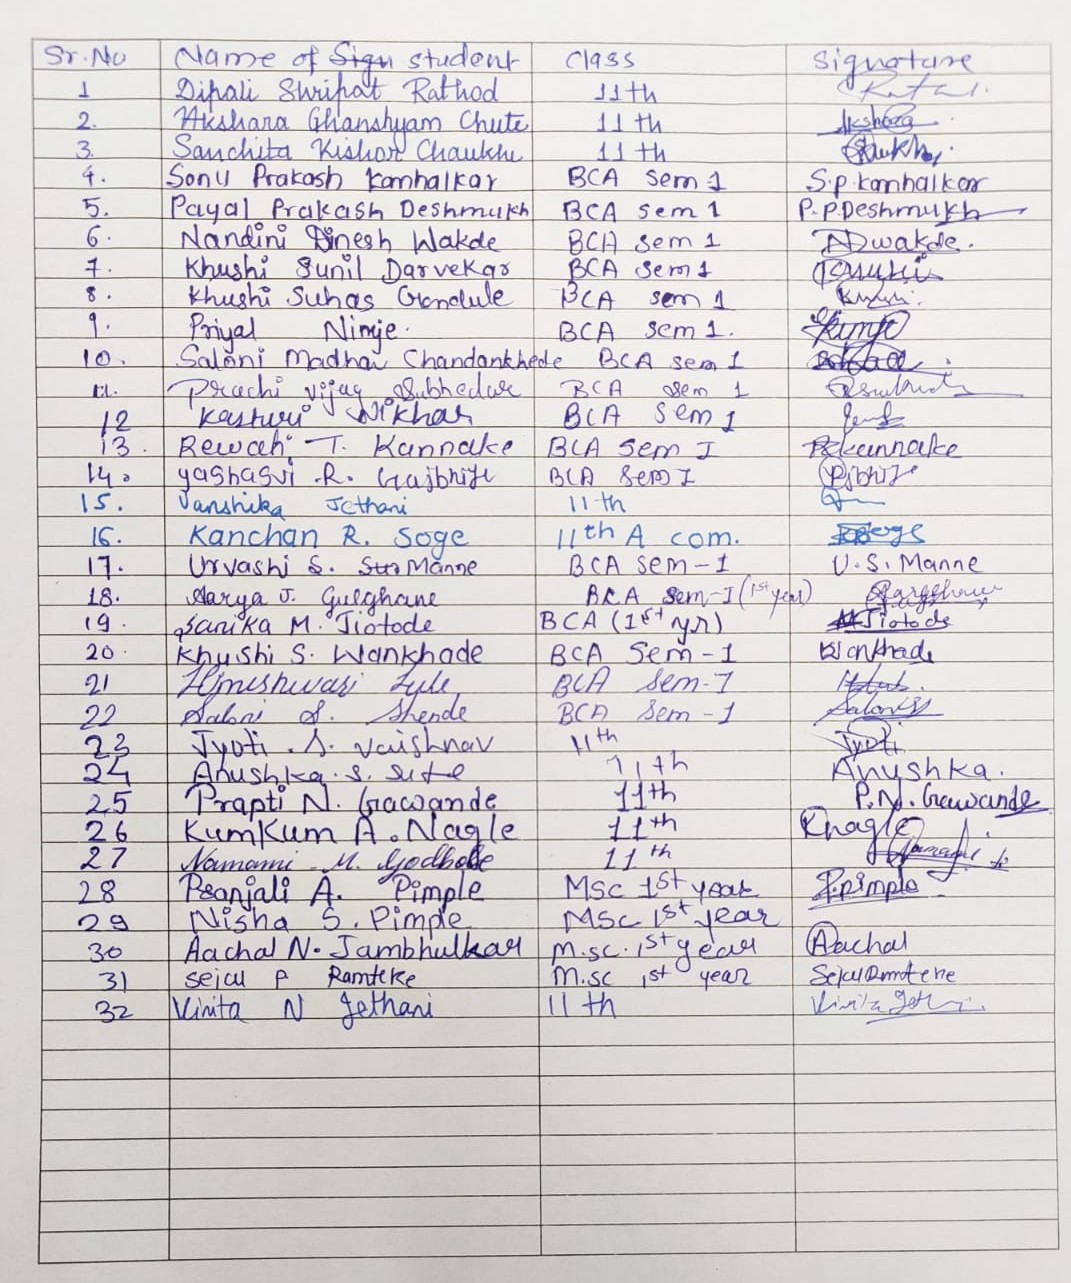 Sr.No Name of Sign student Class Signature
1 Dipali Shripat Rathod 11th
2. Akshara Ghanshyam Chute 11th Akshara
3. Sanchita Kishor Chaukhe 11th
4. Sonu Prakash Kamhalkar BCA Sem 1 S.P.Kamhalkar
5. Payal Prakash Deshmukh BCA sem 1 P.P.Deshmukh
6. Nandini Dinesh Wakde BCA sem 1 NDwakde.
7. Khushi Sunil Darvekar BCA sem 1
8. Khushi Suhas Gondule BCA sem 1
9. Priyal Nimje. BCA sem 1.
10. Saloni Madhav Chandankhede BCA sem 1
11. Prachi Vijay Subhedar BCA sem 1
12 Kasturi Nikhar BCA Sem 1
13. Rewati T. Kannake BCA Sem I Rkannake
14. Yashasvi .R. Gajbhiye BCA Sem I
15. Vanshika Jethani 11th
16. Kanchan R. Soge 11th A com.
17. Urvashi S. Manne BCA sem-1 U.S. Manne
18. Aarya J. Gulghane BCA sem-I (1st year)
19. Sanika M. Jiotode BCA (1st yr) MJiotode
20. Khushi S. Wankhade BCA Sem-1 Wankhade
21 BCA Sem-I
22 Saloni S. Shende BCA Sem-1 Saloni
23 Jyoti .S. Vaishnav 11th Jyoti
24 Anushka.S. Sute 11th Anushka.
25 Prapti N. Gawande 11th P.N. Gawande
26 KumKum A. Nagle 11th Knagle
27 Namami M. Godbole 11th
28 Pranjali A. Pimple Msc 1st year P.pimple
29 Nisha S. Pimple Msc 1st year
30 Aachal N. Jambhulkar M.sc. 1st year Aachal
31 sejal P Ramteke M.sc 1st year
32 Vinita N Jethani 11th Vinita